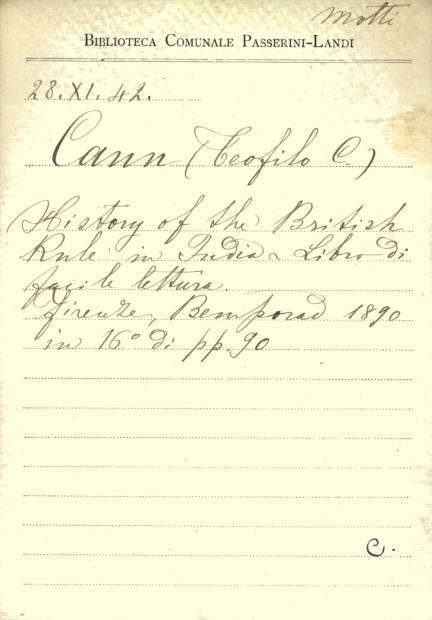 Motti
BIBLIOTECA COMUNALE PASSERINI-LANDI
28.XI.42.
Cann (Teofilo C.)
History of the British
Rule in India - Libro di
facile lettura.
Firenze, Bemporad 1890
in 16° di pp. 90
C.